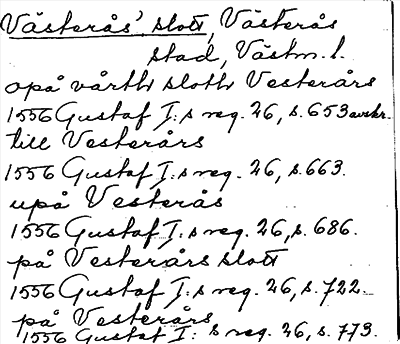 Västerås' slott, Västerås
stad, Västm. l.
opå vårth sloth Vesterårs
1556 Gustaf I: s reg. 26, s. 653 avskr.
till Vesterårs
1556 Gustaf I: s reg. 26, s. 663.
upå Vesterås
1556 Gustaf I: s reg. 26, s. 686.
på Vesterårs slott
1556 Gustaf I: s reg. 26, s. 722.
på Vesterårs
1556 Gustaf I: s reg. 26, s. 773.